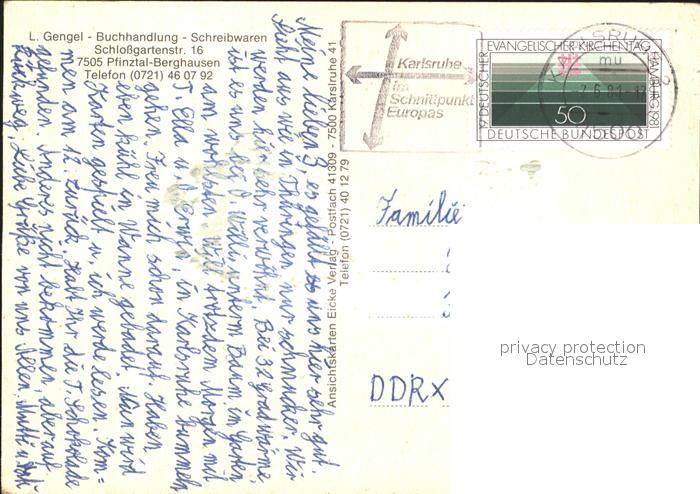 L. Gengel - Buchhandlung - Schreibwaren
Schloßgartenstr. 16
7505 Pfinztal-Berghausen
Telefon (0721) 46 07 92
Ansichtskarten Eicke Verlag - Postfach 41309 - 7500 Karlsruhe 41
Telefon (0721) 40 12 79
Karlsruhe
im
Schnittpunkt
Europas
19. DEUTSCHER EVANGELISCHER KIRCHENTAG HAMBURG 1981
50
DEUTSCHE BUNDESPOST
KARLSRUHE
mu
7500
Familie
DDRX
privacy protection
Datenschutz
lieben 9, es gefällt es uns hier sehr gut.
Sieht aus wie in Thüringen, nur schmucker. Wir
werden hier sehr verwöhnt. Bei 32 grad Wärme
ist es uns bei O. Willi unterm Baum im Garten
am wohlsten. Will trotzdem Morgen mit
T. Ella u. O. in Karlsruhe bummeln
gehen. Freu mich schon darauf. Haben
eben kühl in Wanne gebadet. Nun wird
Karten gespielt u. ich werde lesen. Kom=
men am 12. zurück. Habt Ihr die T. Schokolade
gefunden. Anderes nicht bekommen, aber auf
Rückweg. Liebe Grüße von uns Allen. Mutti u. Vati